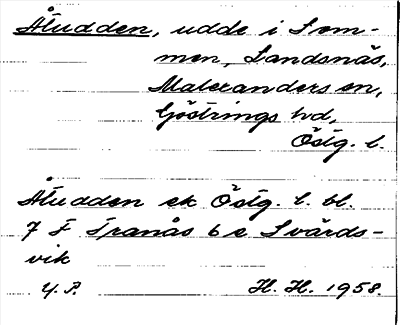 Åludden, udde i Som-
men, Landsnäs,
Malexanders sn,
Göstrings hd,
Östg. l.
Åludden ek Östg. l. bl.
7 F Tranås 6 e Svärds-
vik
H. H. 1958.